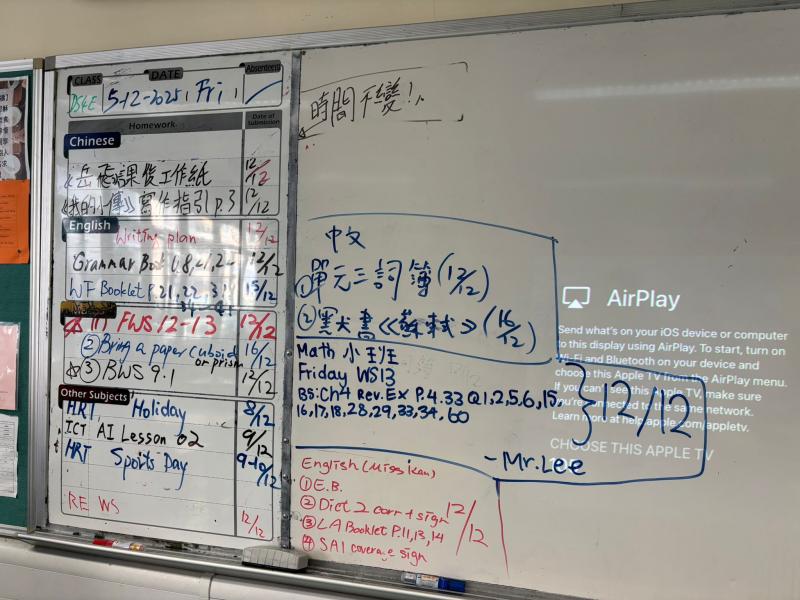 CLASS DATE Absentees
DS4E 5-12-2025, Fri,
Homework Date of Submission
Chinese
《岳飛》課後工作紙 12/12
《我的小傳》寫作指引 p.3 12/12
English
Writing plan 12/12
Grammar Book U.8, 21, 22 12/12
WF Booklet P.21, 22, 15/12
① FWS 12-13 12/12
② Bring a paper cuboid or prism 16/12
③ BWS 9.1 12/12
Other Subjects
HRT Holiday 8/12
ICT AI Lesson 02 9/12
HRT Sports Day 9-10/12
RE WS 12/12
時間不變！
中文
①單元三詞簿(12/12)
②默書《蘇軾》(16/12)
Math 小
Friday WS13
BS: Ch4 Rev. Ex P.4.33 Q1,2,5,6,15,
16,17,18,28,29,33,34,60
} 12/12
-Mr. Lee
English (Miss Kan)
① E.B.
② Dict 2 corr + sign 12/12
③ LA Booklet P.11,13,14
④ SA1 coverage sign
AirPlay
Send what's on your iOS device or computer
to this display using AirPlay. To start, turn on
Wi-Fi and Bluetooth on your device and
choose this Apple TV from the AirPlay menu.
If you can't see this Apple TV, make sure
you're connected to the same network.
Learn more at help.apple.com/appletv.
CHOOSE THIS APPLE TV